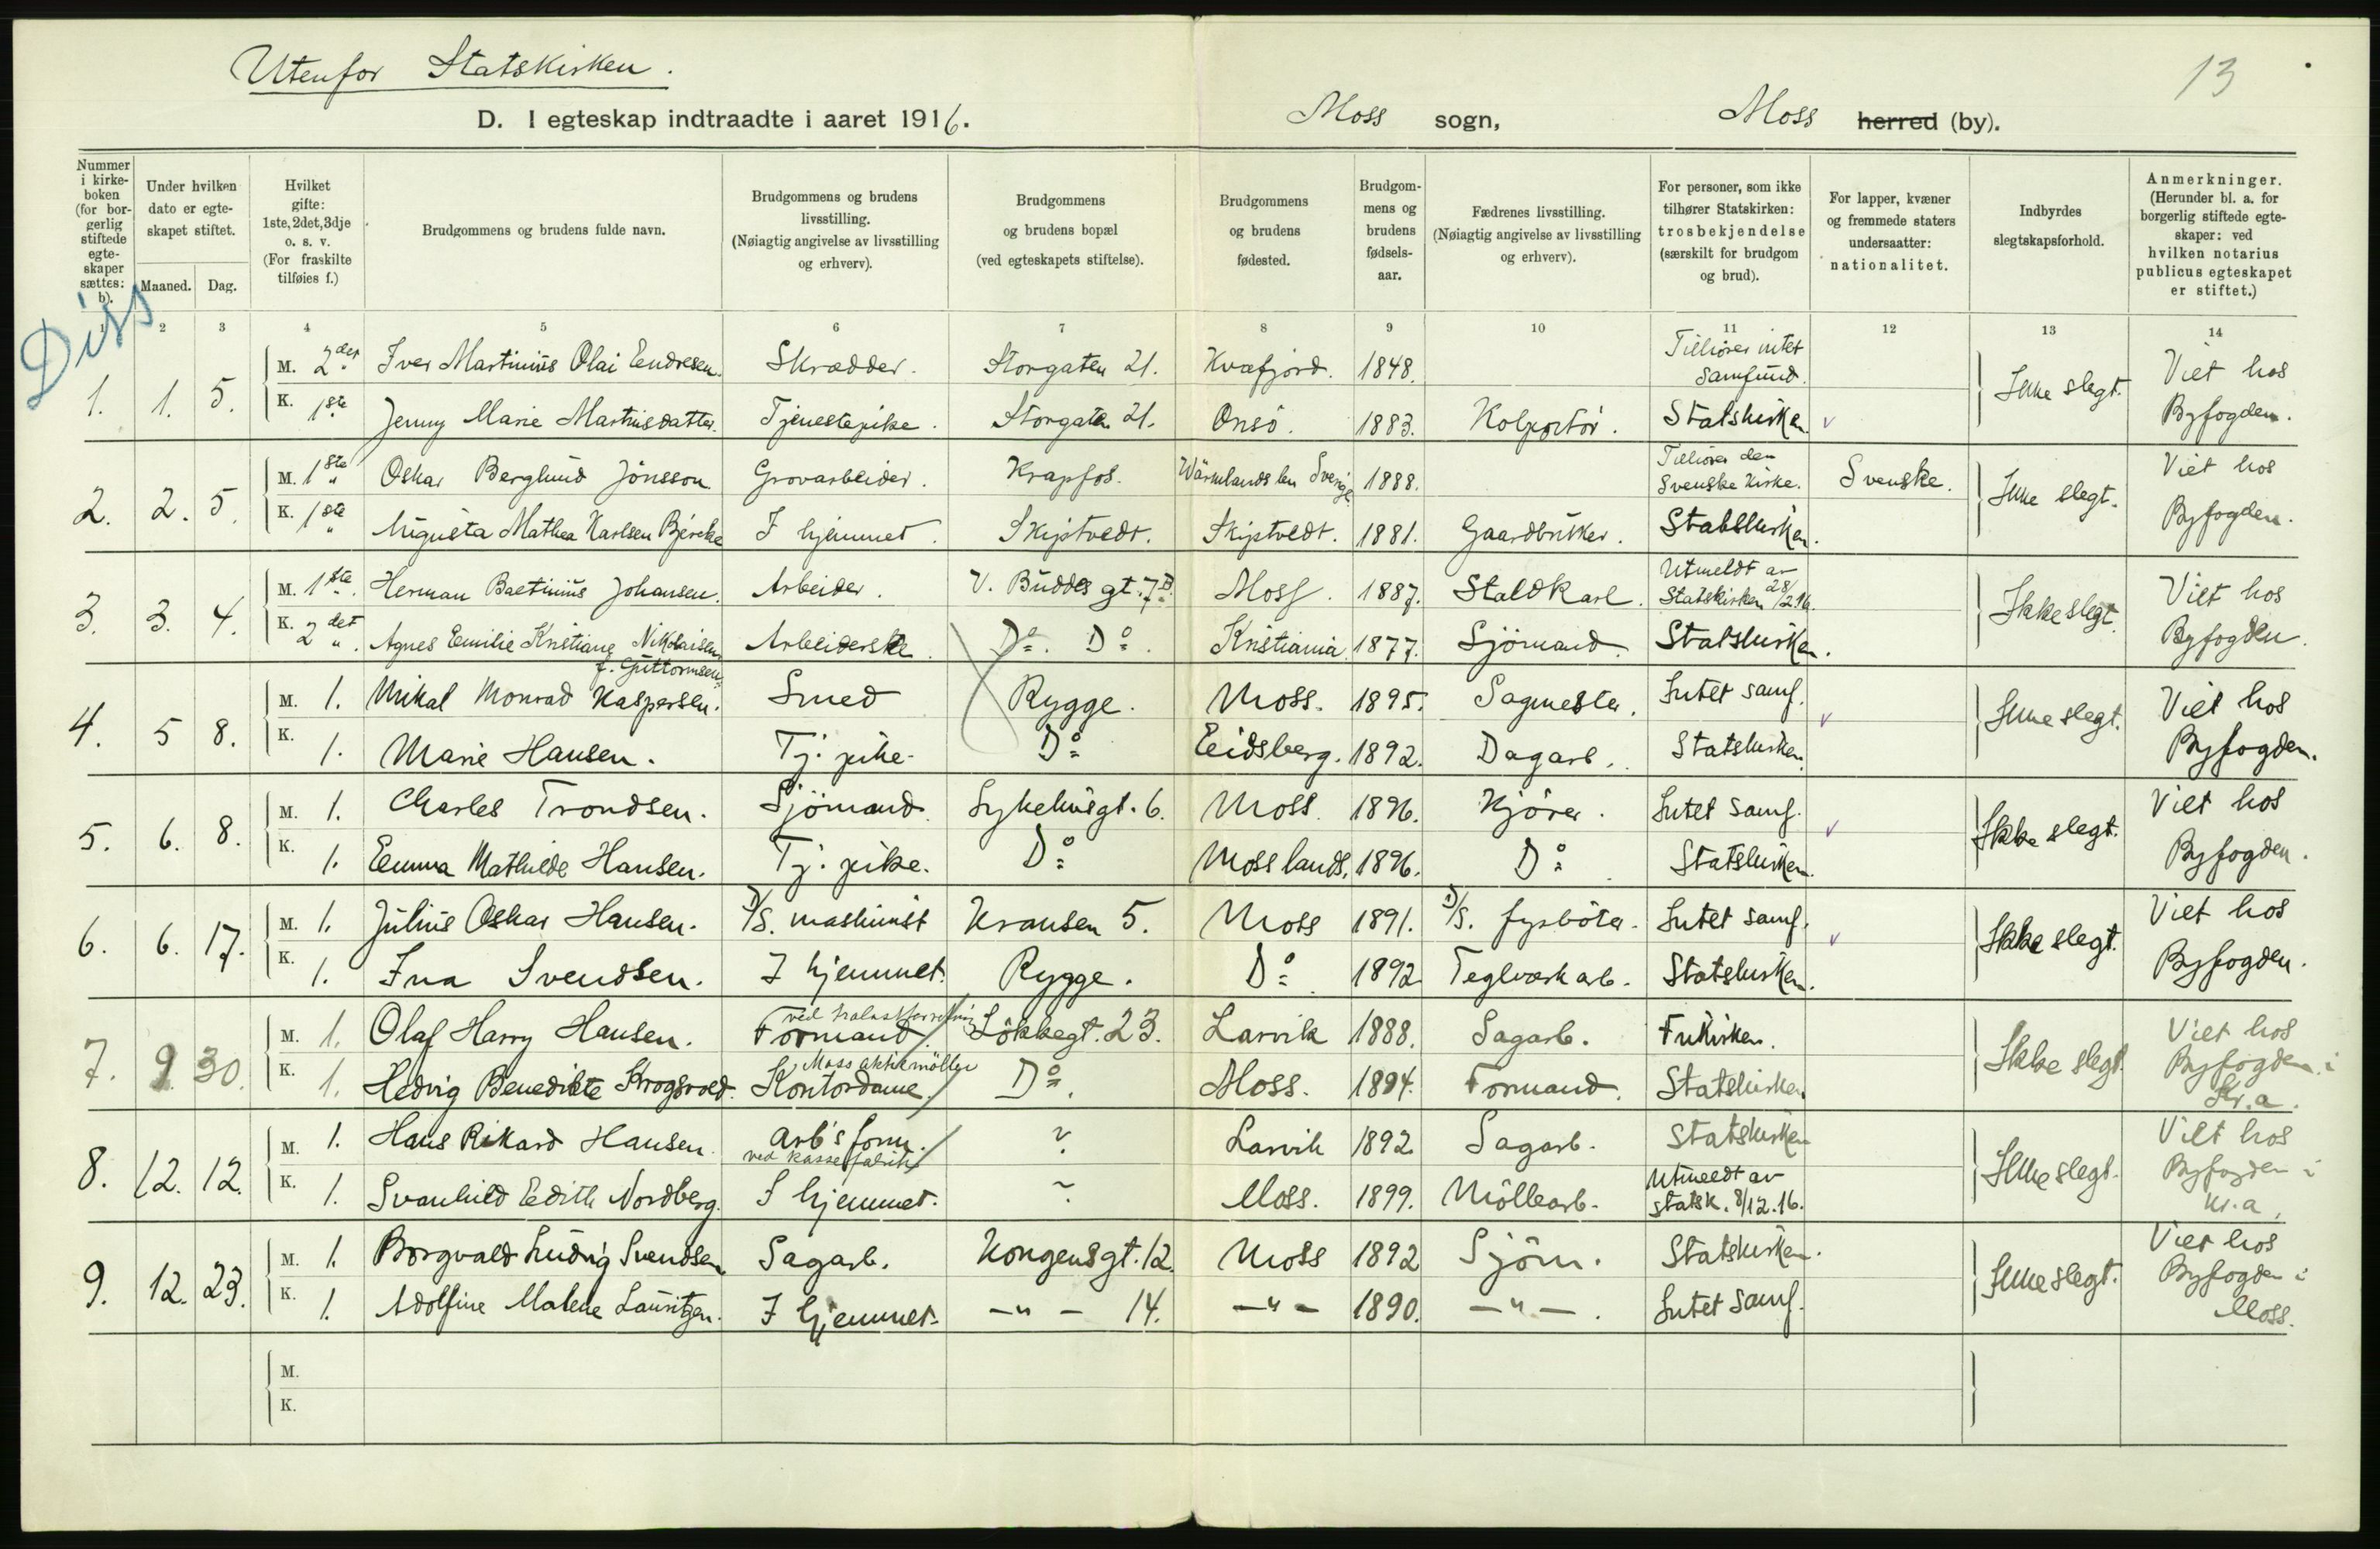 Utenfor Statskirken.
13
D. I egteskap indtraadte i aaret 1916. Moss sogn, Moss herred (by).
Nummer i kirke-boken (for bor-gerlig stiftede egte-skaper sættes: b).
Under hvilken dato er egte-skapet stiftet.
Maaned. Dag.
Hvilket gifte: 1ste, 2det, 3dje o. s. v. (For fraskilte tilføies f.)
Brudgommens og brudens fulde navn.
Brudgommens og brudens livsstilling. (Nøiagtig angivelse av livsstilling og erhverv).
Brudgommens og brudens bopæl (ved egteskapets stiftelse).
Brudgommens og brudens fødested.
Brudgom-mens og brudens fødsels-aar.
Fædrenes livsstilling. (Nøiagtig angivelse av livsstilling og erhverv).
For personer, som ikke tilhører Statskirken: trosbekjendelse (særskilt for brudgom og brud).
For lapper, kvæner og fremmede staters undersaatter: nationalitet.
Indbyrdes slegtskapsforhold.
Anmerkninger. (Herunder bl. a. for borgerlig stiftede egte-skaper: ved hvilken notarius publicus egteskapet er stiftet.)
1 2 3 4 5 6 7 8 9 10 11 12 13 14
Diss
1. 1. 5. M. 2det Iver Martinius Olai Endresen. Skrædder. Storgaten 21. Kvæfjord. 1848. Tilhører intet samfund. Ikke slegt. Viet hos Byfogden.
K. 1ste Jenny Marie Martinsdatter. Tjenestepike. Storgaten 21. Onsö. 1883. Kolportör. Statskirken
2. 2. 5. M. 1ste Oskar Berglund Jonsson. Grovarbeider. Krapfos. Wärmlands len Sverige 1888. Tilhører den Svenske Kirke. Svenske. Ikke slegt. Viet hos Byfogden.
K. 1ste Augusta Mathea Karlsen Bjercke I hjemmet. Skiptvedt. Skiptvedt. 1881. Gaardbruker. Statskirken.
3. 3. 4. M. 1ste. Herman Baetinius Johansen. Arbeider. V. Buddes gt. 7B. Moss. 1887. Staldkarl. Utmeldt av Statskirken 28/2 16. Ikke slegt. Viet hos Byfogden.
K. 2det. Agnes Emilie Kristiane Nikolaisen f. Guttormsen. Arbeiderske. Do. Do. Kristiania 1877. Sjömand. Statskirken.
4. 5 8. M. 1. Mikal Monrad Kaspersen. Smed Rygge. Moss. 1895. Sagmester. Intet samf. Ikke slegt. Viet hos Byfogden.
K. 1. Marie Hansen. Tj. pike. Do Eidsberg. 1892. Dagarb. Statskirken.
5. 6. 8. M. 1. Charles Trondsen. Sjömand. Sykehusgt. 6. Moss. 1896. Kjörer. Intet samf. Ikke slegt. Viet hos Byfogden.
K. 1. Emma Mathilde Hansen. Tj. pike. Do Moss lands. 1896. Do Statskirken.
6. 6. 17. M. 1. Julius Oskar Hansen. D/S. maskinist Kransen 5. Moss 1891. D/S. fyrböter. Intet samf. Ikke slegt. Viet hos Byfogden.
K. 1. Ina Svendsen. I hjemmet. Rygge. Do 1892 Teglverk arb. Statskirken.
7. 9 30. M. 1. Olaf Harry Hansen. Formand ved Lökkegt. 23. Larvik 1888. Sagarb. Frikirken. Ikke slegt. Viet hos Byfogden i Kr.a.
K. 1. Hedvig Benedikte Krogsvold. Kontordame. Moss aktiemöller Do. Moss. 1894. Formand. Statskirken
8. 12. 12. M. 1. Hans Rikard Hansen. Arb's form. ved kassefabrik ? Larvik 1892. Sagarb. Statskirken Ikke slegt. Viet hos Byfogden i Kr.a.
K. 1. Svanhild Edith Nordberg. I hjemmet. ? Moss. 1899. Möllearb. Utmeldt av statsk. 8/12.16.
9. 12. 23. M. 1. Borgvald Ludvig Svendsen Sagarb. Kongensgt. 12. Moss 1892 Sjöm. Statskirken. Ikke slegt. Viet hos Byfogden i Moss.
K. 1. Adolfine Malene Lauritzen. I hjemmet. —"— 14. —"— 1890. —"—. Intet samf.
M.
K.